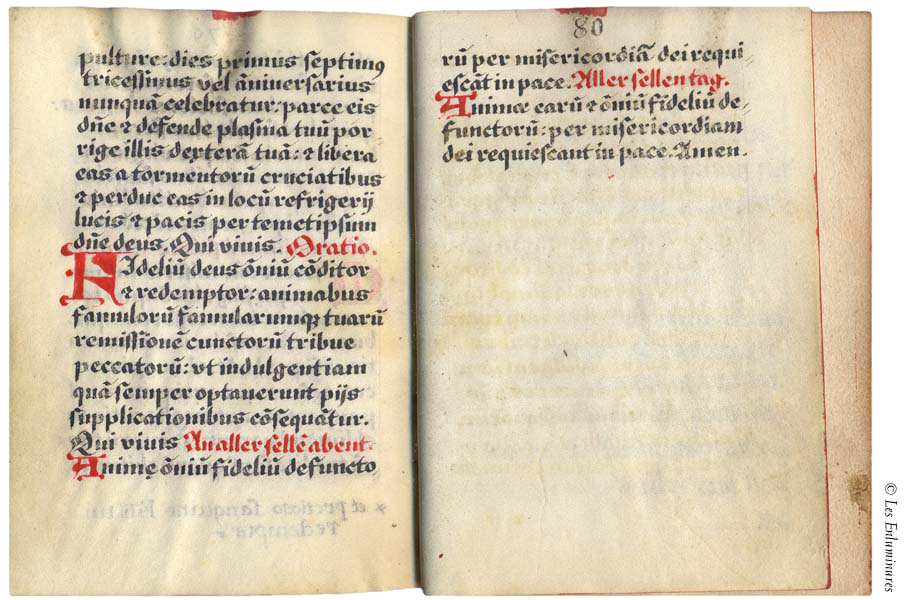 pulture: dies primus septimꝰ
tricessimus vel ãniversarius
nunquã celebratur: parce eis
dñe ⁊ defende plasma tuũ por
rige illis dexterã tuã: ⁊ libera
eas a tormentorũ cruciatibus
⁊ perduc eas in locũ refrigerij
lucis ⁊ pacis per temetipsum
dñe deus. Qui vivis. Oratio.
Fideliũ deus õniũ cõditor
⁊ redemptor: animabus
famulorũ famularumqꝫ tuarũ
remissionẽ cunctorũ tribue
peccatorũ: vt indulgentiam
quã semper optauerunt pijs
supplicationibus cõsequãtur.
Qui vivis An aller sellẽ abent.
Animę õniũ fideliũ defuncto
80
rũ per misericordiã dei requi
escãt in pace. Aller sellen tag.
Animæ earũ ⁊ õniũ fideliũ de-
functorũ: per misericordiam
dei requiescant in pace. Amen.
© Les Enluminures